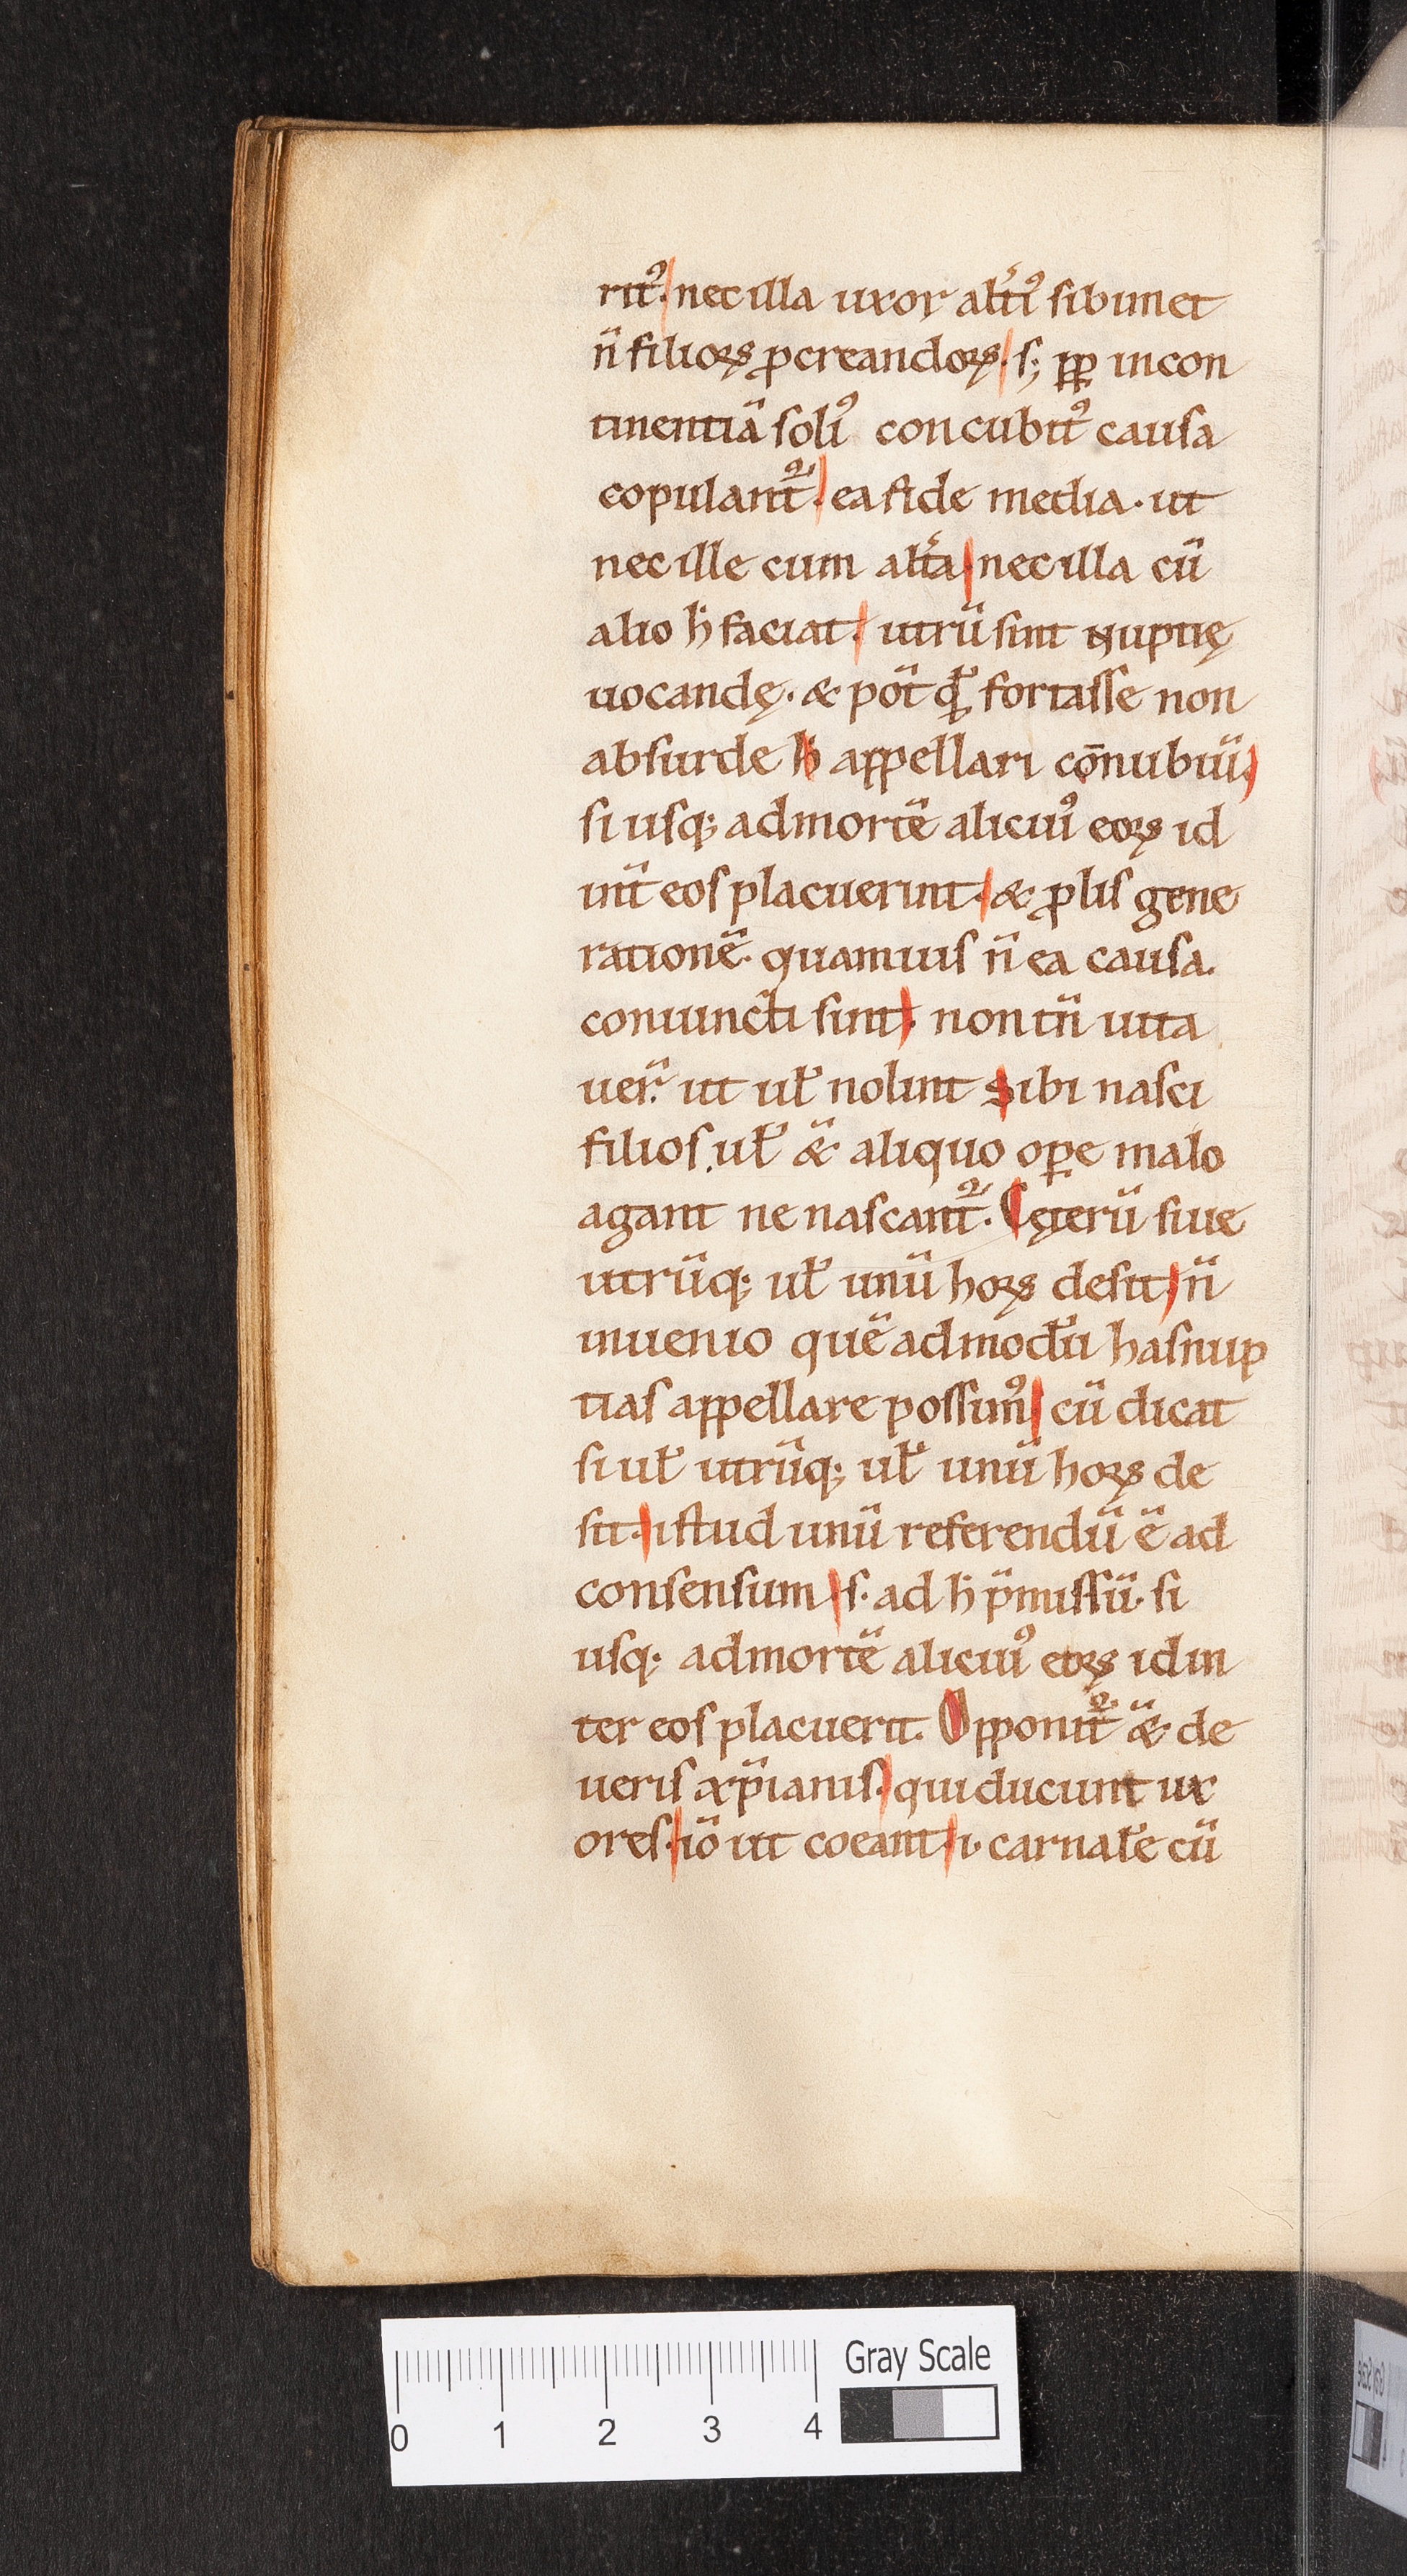 ritꝰ. nec illa uxor altiꝰ sibimet
n̄ filioꝝ ꝓcreandoꝝ. s; ꝓp̄ incon
tinentiā soliꝰ concubitꝰ causa
copulant᷑. ea fide media. ut
nec ille cum alt͛a. nec illa cū
alio h̄ faciat. utrū sint nuptię
uocandę. & pot̄ qd̄ fortasse non
absurde h̄ appellari cōnubiū.
si usq; ad mortē alicuiꝰ eoꝝ id
int̄ eos placuerint. & ꝓlis gene
rationē. quamuis n̄ ea causa.
coniuncti sint. non tn̄ uita
uer̄. ut ul̄ nolint sibi nasci
filios. ul̄ &̄ aliquo oꝑe malo
agant ne nascant᷑. Cęterū siue
utrūq; ul̄ unū hoꝝ desit. n̄
inuenio quē ad modū has nup
tias appellare possimꝰ. cū dicat
si ul̄ utrūq; ul̄ unū hoꝝ de
sit. istud unū referendū ē ad
consensum. s. ad h̄ p̄missū. si
usq; ad mortē alicuiꝰ eoꝝ id in
ter eos placuerit. Opponit᷑ &̄ de
ueris xp̄ianis. qui ducunt ux
ores. iō ut coeant. i. carnal̄e cū
0 1 2 3 4 Gray Scale